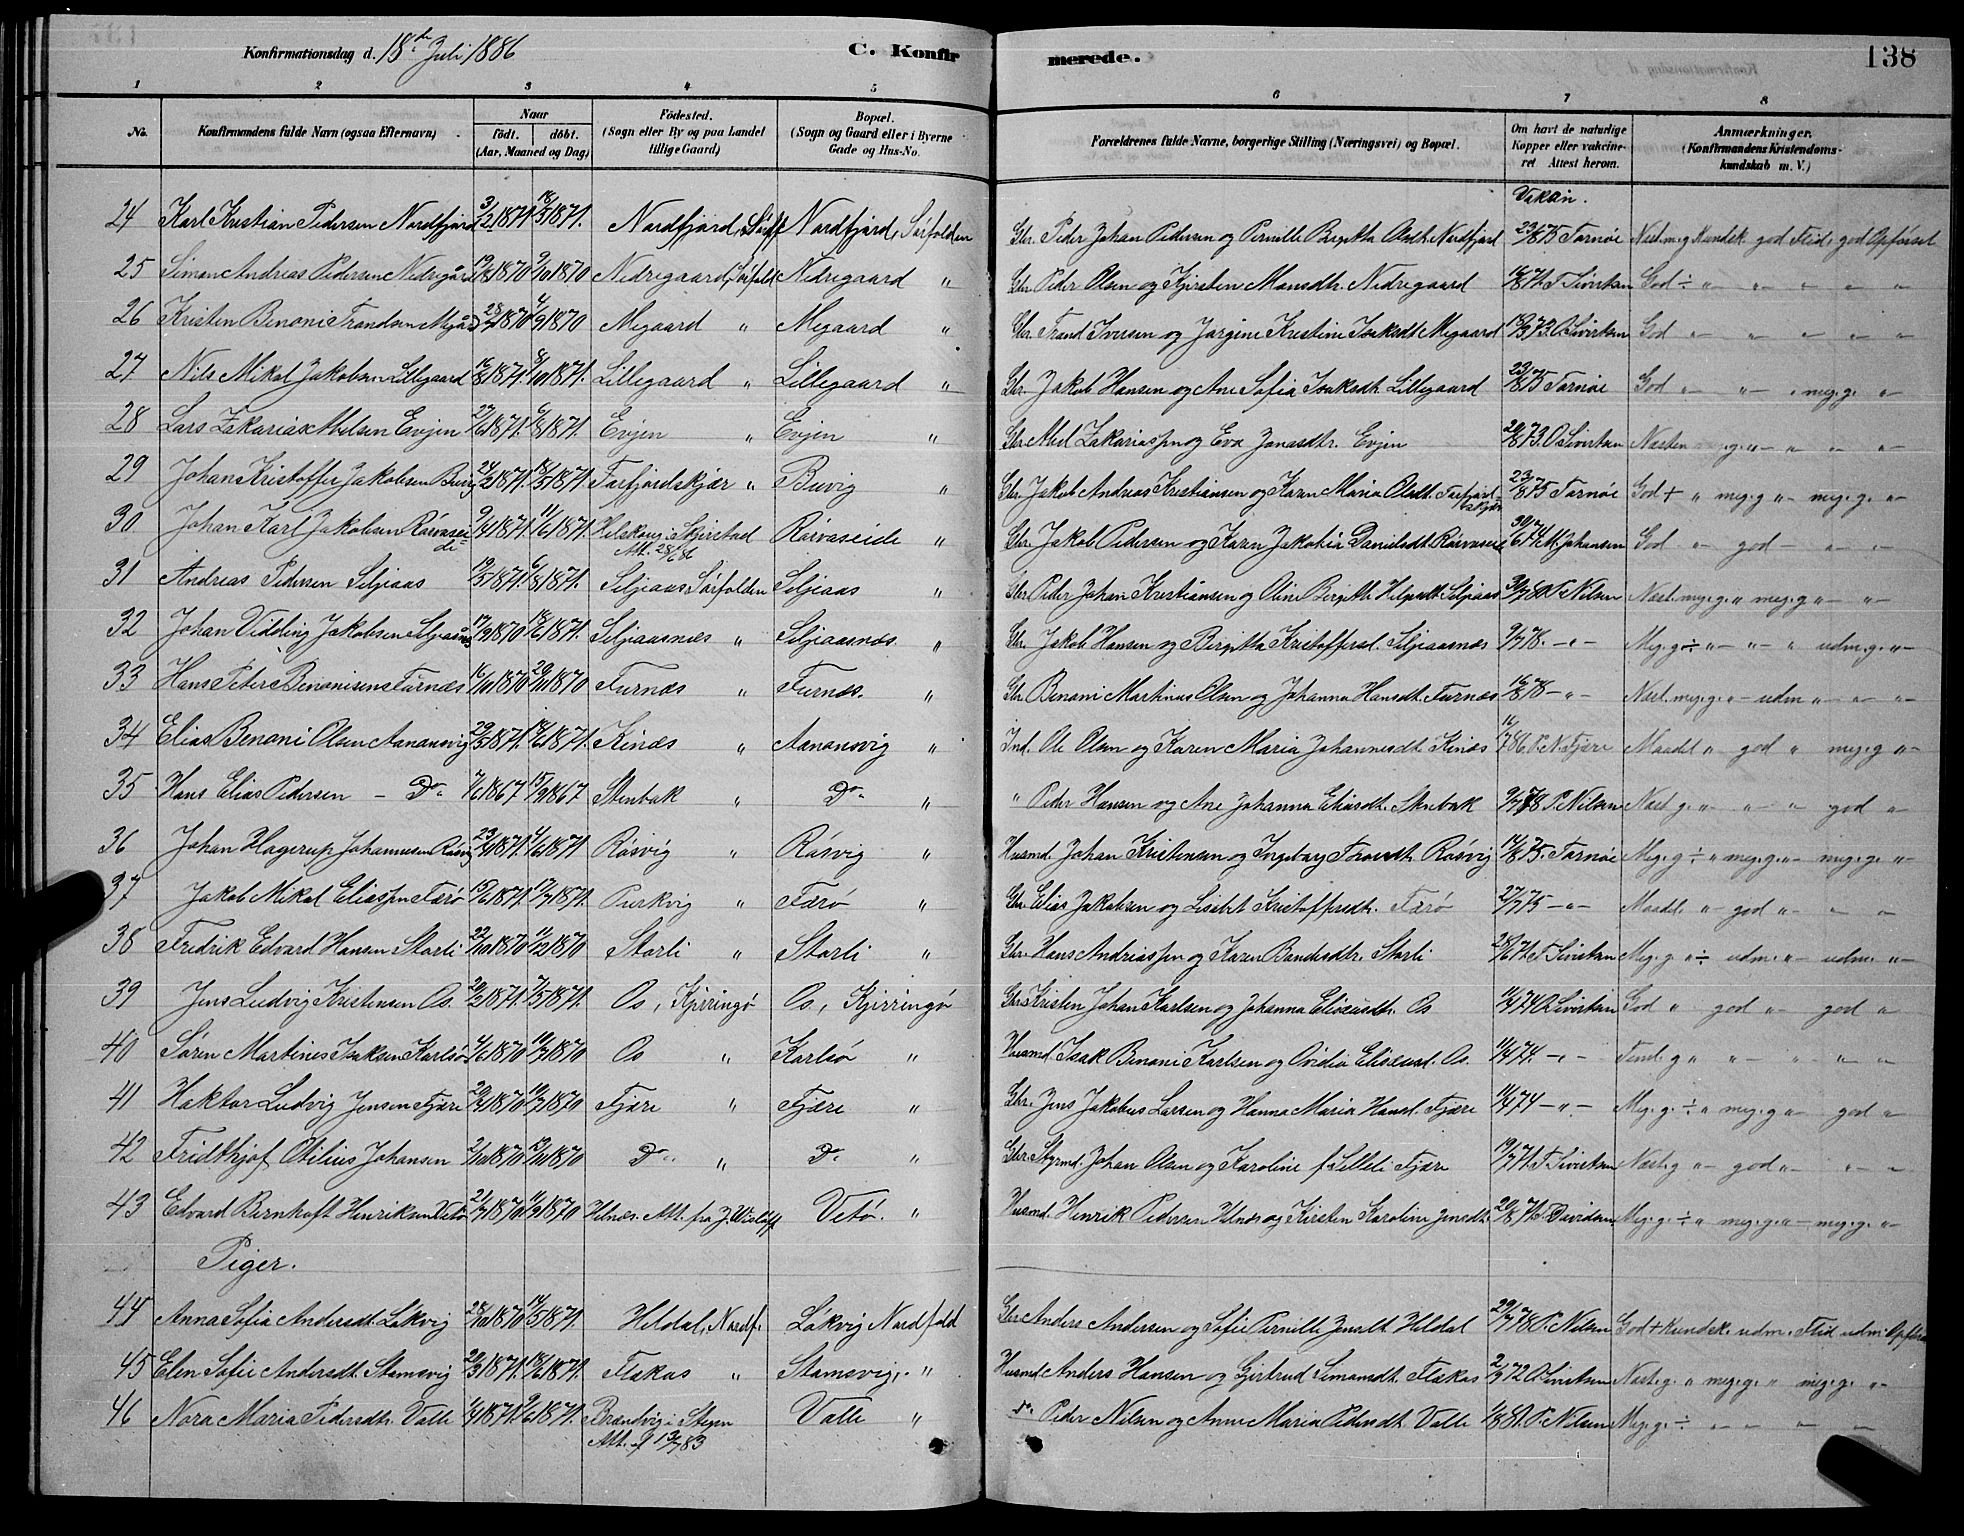 Konfirmationsdag d. 18de Juli 1886
C. Konfirmerede.
138
1 2 3 4 5 6 7 8
No. Konfirmandens fulde Navn (ogsaa Efternavn) Naar født. døbt. (Aar, Maaned og Dag) Fødested. (Sogn eller By og paa Landet tillige Gaard) Bopæl. (Sogn og Gaard eller i Byerne Gade og Hus-No. Forældrenes fulde Navne, borgerlige Stilling (Næringsvei) og Bopæl. Om havt de naturlige Kopper eller vakcineret Attest herom. Anmærkninger. (Konfirmandens Kristendomskundskab m. V.)
Vakcin.
24 Karl Kristian Pedersen Nordfjord 3/2 1871. 18/5 1871. Nordfjord, Sørf. Nordfjord, Sørfolden Gbr. Peder Johan Pedersen og Pernille Birgitta Olsdt. Nordfjord 23/8 75 Tarnøe Næst m. g. Kundsk. god Flid, god Opførsel
25 Simon Andreas Pedersen Nedregård 19/8 1870 9/10 1870 Nedregaard, Sørfold Nedregaard " Gbr. Peder Olsen og Kjirsten Monsdtr. Nedregaard T. Sivertsen God ÷ " " " " "
26 Kristen Benoni Trandsen Megård 28/7 1870 4/9 1870 Megaard " Megaard " Gbr. Trand Iversen og Jørgine Kristine Isaksdt. Megaard O. Sivertsen God " " " " "
27 Nils Mikal Jakobsen Lillegaard 16/8 1871. 8/10 1871. Lillegaard " Lillegaard " Gbr. Jakob Hansen og Ane Sofia Isaksdt. Lillegaard 23/8 75 Tarnøe God " " " meg. g. "
28 Lars Zakarias Abelsen Evjen 27/6 1871. 6/8 1871. Evjen " Evjen " Gbr. Abel Zakariassen og Eva Jonasdtr. Evjen 20/8 73. O. Sivertsen Næsten m. g. " " " "
29 Johan Kristoffer Jakobsen Buvig 24/2 1871. 18/5 1871. Farfjordskjær " Buvig " Gbr. Jakob Andreas Kristiansen og Karen Maria Olsdt. Farfjordskjær 23/8 75 Tarnøe God + " meg. g " meg. g. "
30 Johan Karl Jakobsen Rørvaseide 9/4 1871. 11/6 1871. Helskoug i Skjerstad Att. 28/6 86 Rørvaseide " Gbr. Jakob Pedersen og Karen Jakobia Danielsdt. Rørvaseide M. Johansen God " god " " "
31 Andreas Pedersen Siljiaas 19/5 1871. 6/8 1871. Siljiaas Sørfolden Siljiaas " Gbr. Peder Johan Kristiansen og Oline Birgitte Helgesdt. Siljiaas P. Nilsen Næst meg. g. " meg. g " "
32 Johan Vidding Jakobsen Siljiaasnæs 17/9 1870 18/6 1871. Siljiaasnæs " Siljiaasnæs. " Gbr. Jakob Hansen og Birgitta Kristoffersd. Siljiaasnæs 9/7 78. " Meg. g ÷ " " " udm. g. "
33 Hans Peter Benonisen Furnæs 16/10 1870 20/11 1870 Furnæs " Furnæs. " Gbr. Benoni Martinus Olsen og Johanna Hansdt. Furnæs 16/8 78 " Næst. meg. g. " udm " " "
34 Elias Benoni Olsen Aanansvig 29/3 1871. 18/6 1871. Kinæs " Aanansvig " Ind. Ole Olsen og Karen Maria Johannesdt. Kinæs 16/7 86. P. N. Fjære Maadel. " god " meg. g "
35 Hans Elias Pedersen Do 7/6 1867 15/9 1867 Stenbak " Do " " Peder Hansen og Ane Johanna Eliasdt. Stenbak 9/7 78 P. Nilsen Næst g. " " " god "
36 Johan Hagerup Johannesen Røsvig 23/4 1871. 4/6 1871 Røsvig " Røsvig " Husmd. Johan Kristensen og Ingeborg Trondsdt. Røsvig 14/8 75. Tarnøe Meg. g ÷ " meg. g. " meg. g. "
37 Jakob Mikal Eliassen Færø 15/6 1871. 17/7 1871. Purkvig " Færø " Gbr. Elias Jakobsen og Lisebet Kristoffersdt. Færø 27/7 75 " Maadel. " god " " "
38 Fredrik Edvard Hansen Storli 22/10 1870 11/12 1870 Storli " Storli " Gbr. Hans Andreassen og Karen Bendesdtr. Storli 28/6 71. T. Sivertsen Meg. g " ÷ udm. " udm. "
39 Jens Ludvig Kristensen Os. 20/2 1871. 7/5 1871. Os, Kjerringø Os., Kjerringø Gbr. Kristen Johan Karlsen og Johanna Eliseusdt. Os 11/9 74 O. Sivertsen God " god " god "
40 Søren Martines Isaksen Karlsø 4/6 1870 10/7 1870 Os " Karlsø " Husmd. Isak Benoni Karlsen og Ovidia Eliseusd. Os. 11/9 74. " Teml. g " " " " "
41 Haktor Ludvig Jensen Fjære 29/4 1870 10/7 1870 Fjære " Fjære " Gbr. Jens Jakobus Larsen og Hanna Maria Hansd. Fjære 11/9 74 " Meg. g. ÷ " meg. g " god "
42 Fridthjof Otilius Johansen 2/10 1870 13/11 1870 Do " Do " Gbr. Styrmd. Johan Olsen og Karoline f. Lilleli Fjære 19/7 71. T. Sivertsen Næst. g " god " " "
43 Edvard Bernhoft Henriksen Vetø 21/7 1870 11/9 1870 Helnæs. Att. fra J. Wisløff Vetø. " Husmd. Henrik Pedersen Helnæs og Kirsten Karoline Jensdt. 20/8 71. Davidsen Meg. g. ÷ " meg. g. " meg. g. "
Piger.
44 Anna Sofia Andersdt. Løkvig 28/10 1870 14/5 1871. Heldal, Nordf. Løkvig Nordfold Gbr. Anders Andersen og Sofie Pernille Jensdt. Heldal 29/7 78 P. Nilsen God + Kundsk. udm. Flid udm. Opførs
45 Elen Sofie Andersdt. Stamsvig 20/3 1871. 18/6 1871. Flakas " Stamsvig, " Husmd. Anders Hansen og Gjertrud Simonsdt. Flakas 2/9 72 O. Sivertsen Næst. g. " meg. g. " meg. g. "
46 Nora Maria Pedersdtr. Valle 1/4 1871 9/6 1871. Brandvig i Stegen Att. af 13/7 83 Valle " do. Peder Nilsen og Anne Maria Pedersdt. Valle 1/8 81. P. Nilsen Meg. g. ÷ " " " "